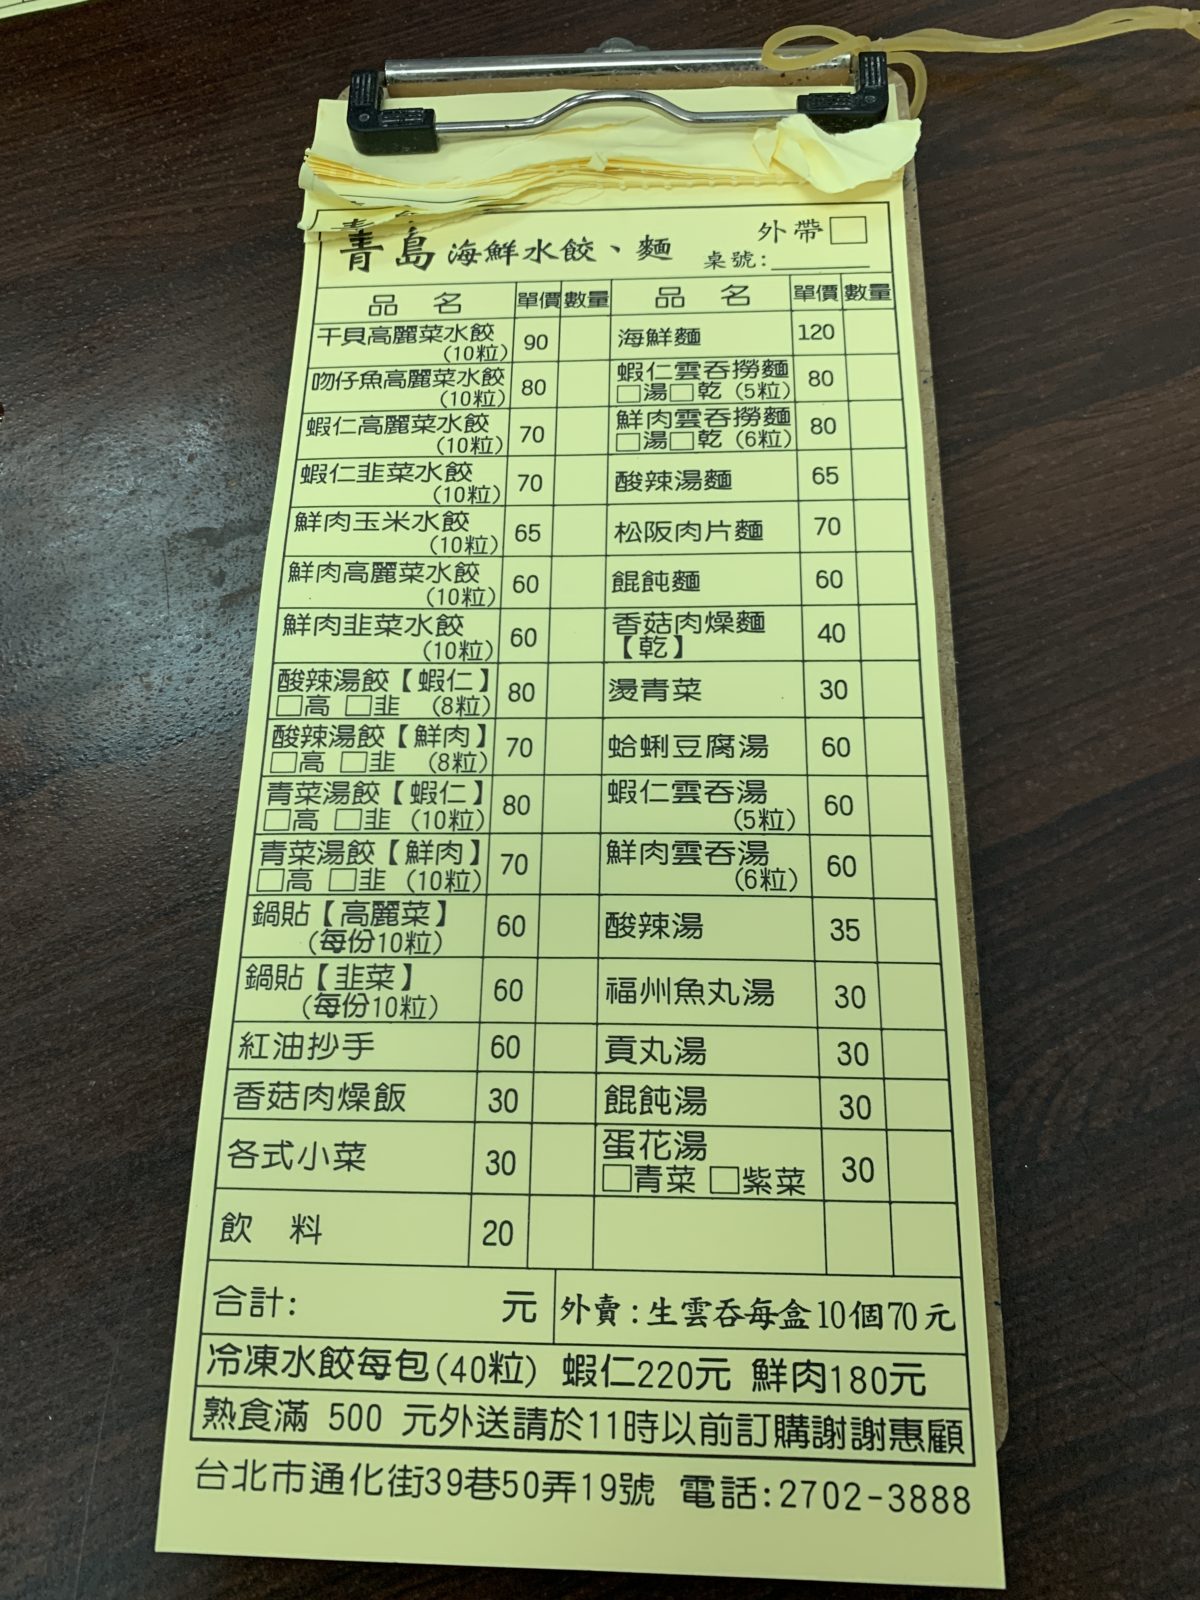 青島 海鮮水餃、麵
外帶□
桌號:
品名 單價 數量 品名 單價 數量
干貝高麗菜水餃 (10粒) 90
吻仔魚高麗菜水餃 (10粒) 80
蝦仁高麗菜水餃 (10粒) 70
蝦仁韭菜水餃 (10粒) 70
鮮肉玉米水餃 (10粒) 65
鮮肉高麗菜水餃 (10粒) 60
鮮肉韭菜水餃 (10粒) 60
酸辣湯餃【蝦仁】 □高 □韭 (8粒) 80
酸辣湯餃【鮮肉】 □高 □韭 (8粒) 70
青菜湯餃【蝦仁】 □高 □韭 (10粒) 80
青菜湯餃【鮮肉】 □高 □韭 (10粒) 70
鍋貼【高麗菜】 (每份10粒) 60
鍋貼【韭菜】 (每份10粒) 60
紅油抄手 60
香菇肉燥飯 30
各式小菜 30
飲料 20
海鮮麵 120
蝦仁雲吞撈麵 □湯□乾 (5粒) 80
鮮肉雲吞撈麵 □湯□乾 (6粒) 80
酸辣湯麵 65
松阪肉片麵 70
餛飩麵 60
香菇肉燥麵 【乾】 40
燙青菜 30
蛤蜊豆腐湯 60
蝦仁雲吞湯 (5粒) 60
鮮肉雲吞湯 (6粒) 60
酸辣湯 35
福州魚丸湯 30
貢丸湯 30
餛飩湯 30
蛋花湯 □青菜 □紫菜 30
合計: 元
外賣:生雲吞每盒10個70元
冷凍水餃每包(40粒) 蝦仁220元 鮮肉180元
熟食滿 500 元外送請於11時以前訂購謝謝惠顧
台北市通化街39巷50弄19號 電話:2702-3888